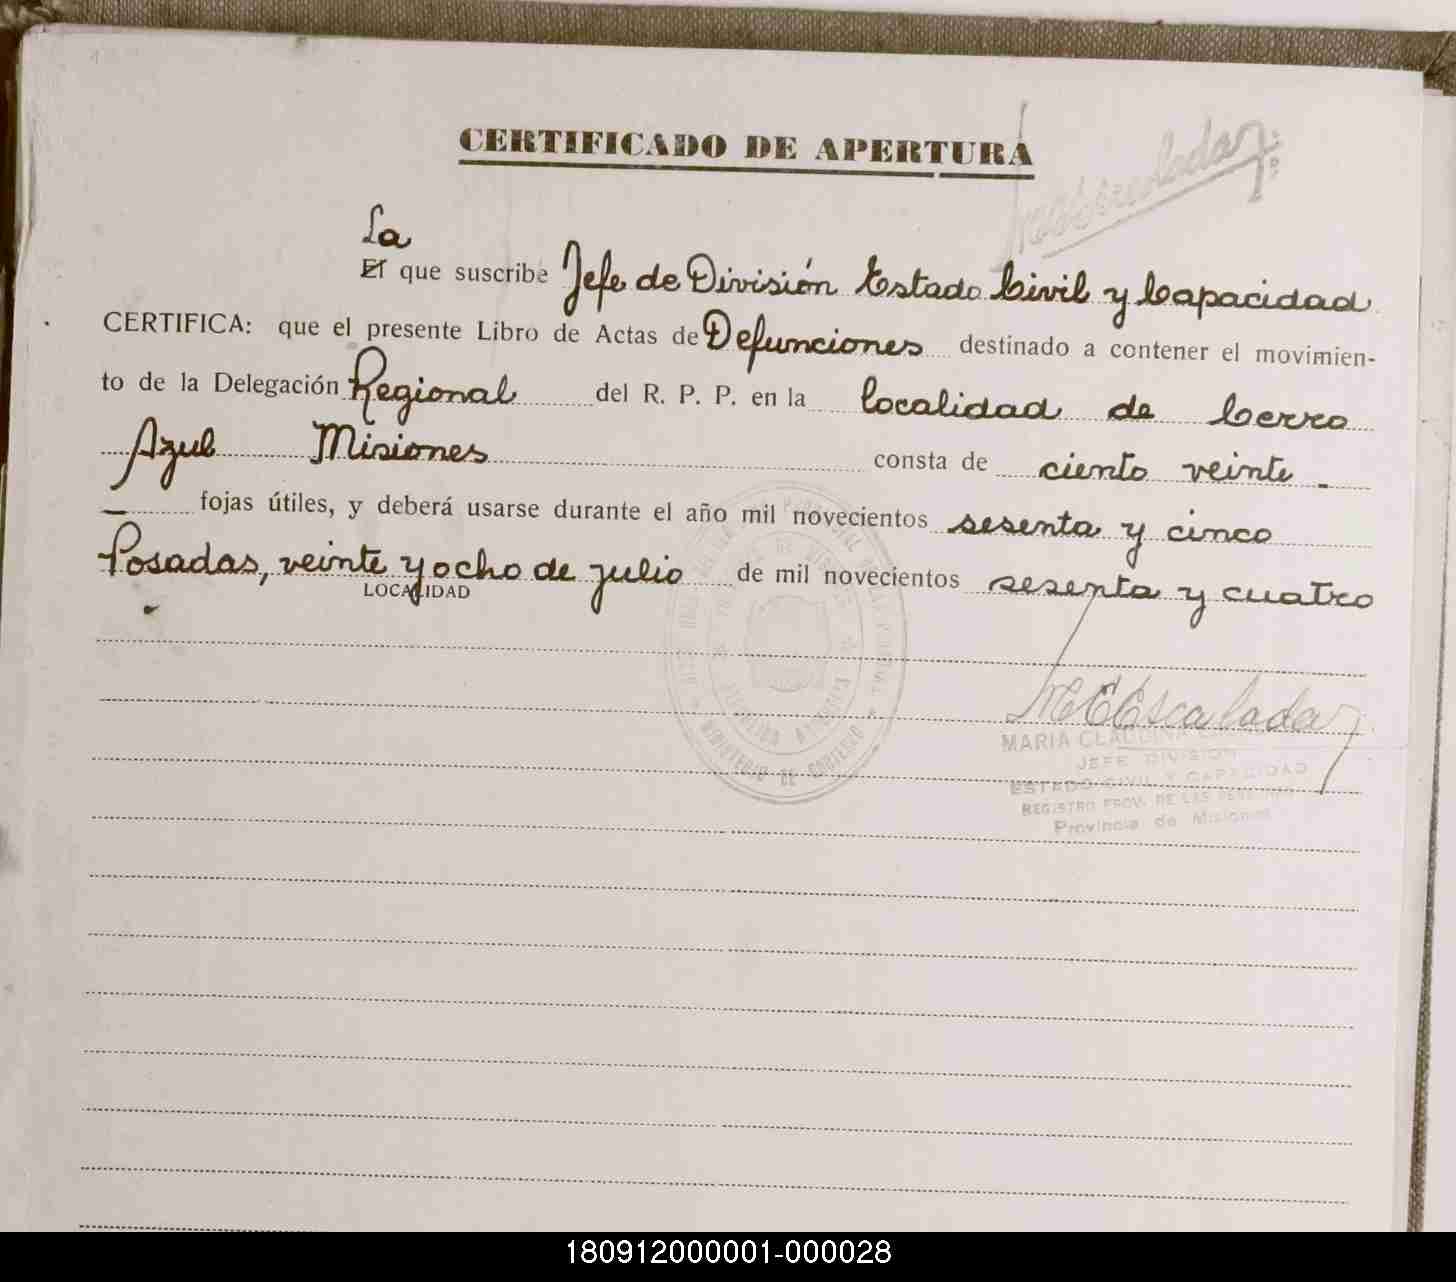 CERTIFICADO DE APERTURA
La
El que suscribe Jefe de División Estado Civil y Capacidad
CERTIFICA: que el presente Libro de Actas de Defunciones destinado a contener el movimien-
to de la Delegación Regional del R. P. P. en la localidad de Cerro
Azul Misiones consta de ciento veinte -
— fojas útiles, y deberá usarse durante el año mil novecientos sesenta y cinco
Posadas, veinte y ocho de julio de mil novecientos sesenta y cuatro
LOCALIDAD
MCEscalada
MARIA CLAUDINA
JEFE DIVISION
ESTADO CIVIL Y CAPACIDAD
REGISTRO PROV. DE LAS PERSONAS
Provincia de Misiones
MINISTERIO DE GOBIERNO
180912000001-000028